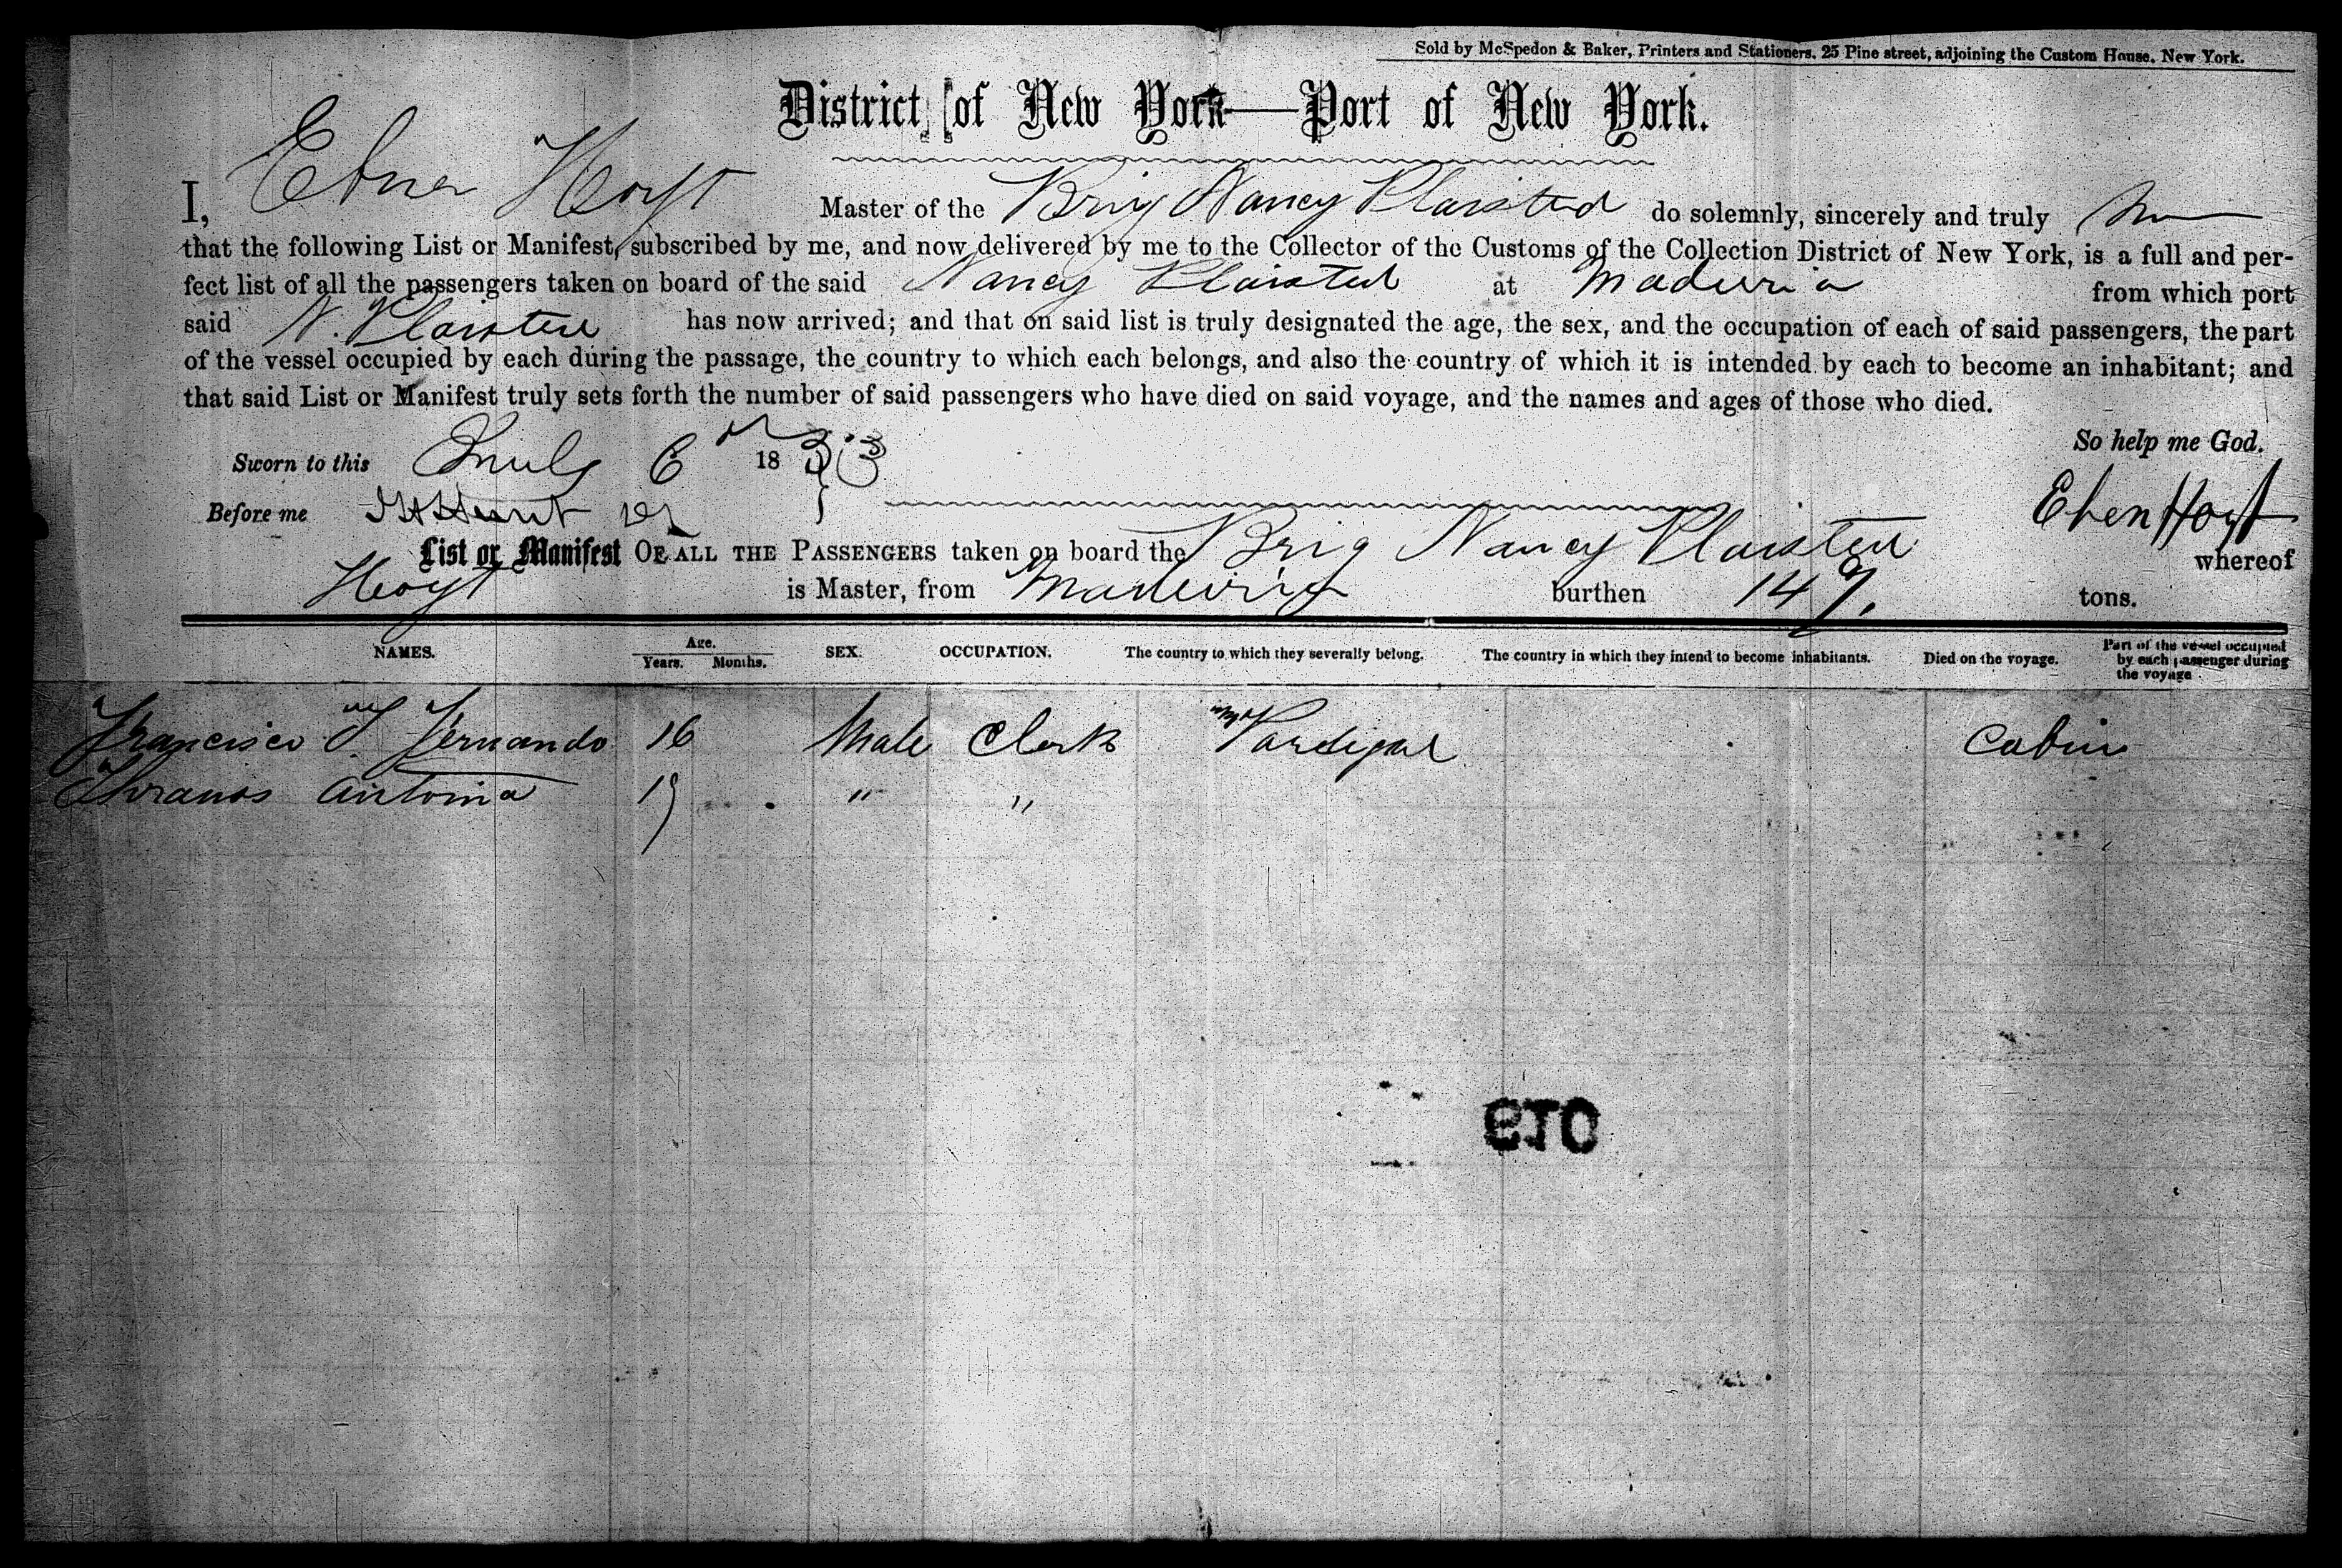 Sold by McSpedon & Baker, Printers and Stationers, 25 Pine street, adjoining the Custom House, New York.
District of New York—Port of New York.
I, Ebner Hoyt Master of the Brig Nancy Plaisted do solemnly, sincerely and truly
that the following List or Manifest, subscribed by me, and now delivered by me to the Collector of the Customs of the Collection District of New York, is a full and per-
fect list of all the passengers taken on board of the said Nancy Plaisted at Maderia from which port
said N. Plaisted has now arrived; and that on said list is truly designated the age, the sex, and the occupation of each of said passengers, the part
of the vessel occupied by each during the passage, the country to which each belongs, and also the country of which it is intended by each to become an inhabitant; and
that said List or Manifest truly sets forth the number of said passengers who have died on said voyage, and the names and ages of those who died.
So help me God.
Sworn to this July 6 1853
Before me Eben Hoyt
List or Manifest OF ALL THE PASSENGERS taken on board the Brig Nancy Plaisted whereof
Hoyt is Master, from Maderia burthen 149. tons.
NAMES. Age. Years. Months. SEX. OCCUPATION. The country to which they severally belong. The country in which they intend to become inhabitants. Died on the voyage. Part of the vessel occupied by each passenger during the voyage
Francisco J Fernando 16 Male Clerk Pordigal Cabin
Antonia 19 " "